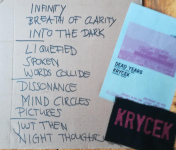 INFINITY
BREATH OF CLARITY
INTO THE DARK
LIQUEFIED
SPOKEN
WORDS COLLIDE
DISSONANCE
MIND CIRCLES
PICTURES
JUST THEN
NIGHT THOUGHTS
DEAD YEARS
KRYCEK
KRYCEK